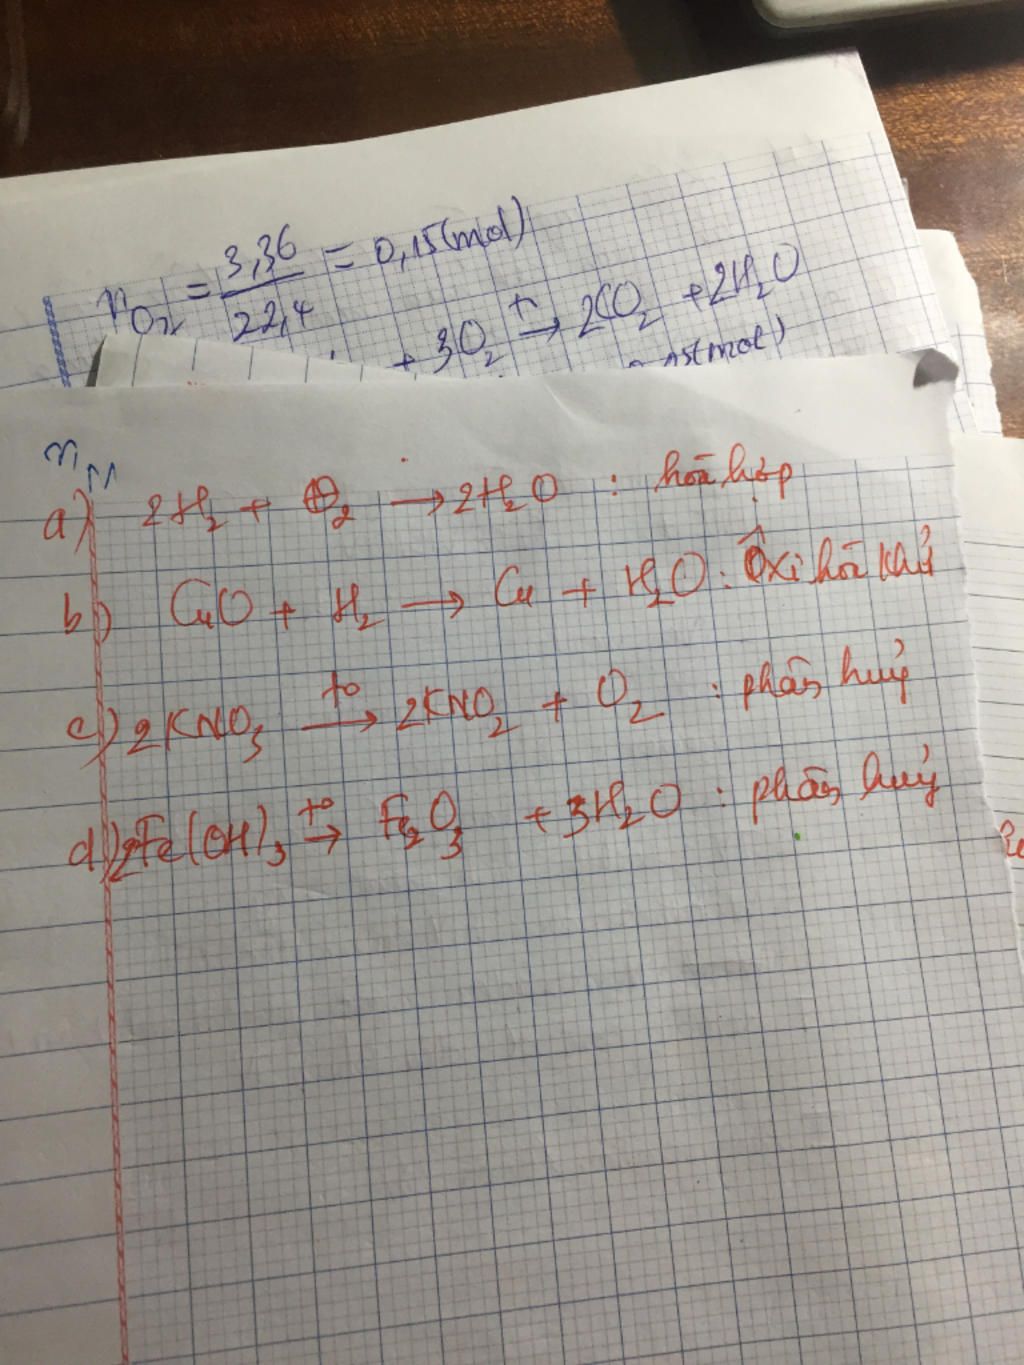 nO₂ = 3,36/22,4 = 0,15(mol)
+ 3O₂ → 2CO₂ + 2H₂O
(mol)
a) 2H₂ + O₂ → 2H₂O : hoá hợp
b) CuO + H₂ → Cu + H₂O : Ôxi hoá khử
c) 2KNO₃ t° → 2KNO₂ + O₂ : phân huỷ
d) 2Fe(OH)₃ t° → Fe₂O₃ + 3H₂O : phân huỷ